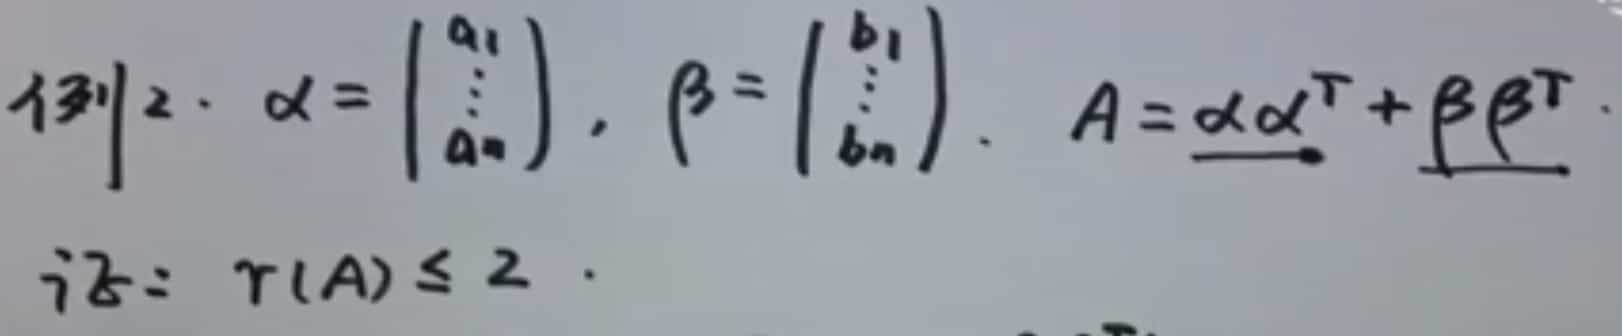 例2. α = (a1 ⋮ an), β = (b1 ⋮ bn). A = ααᵀ + ββᵀ.
证: r(A) ≤ 2.